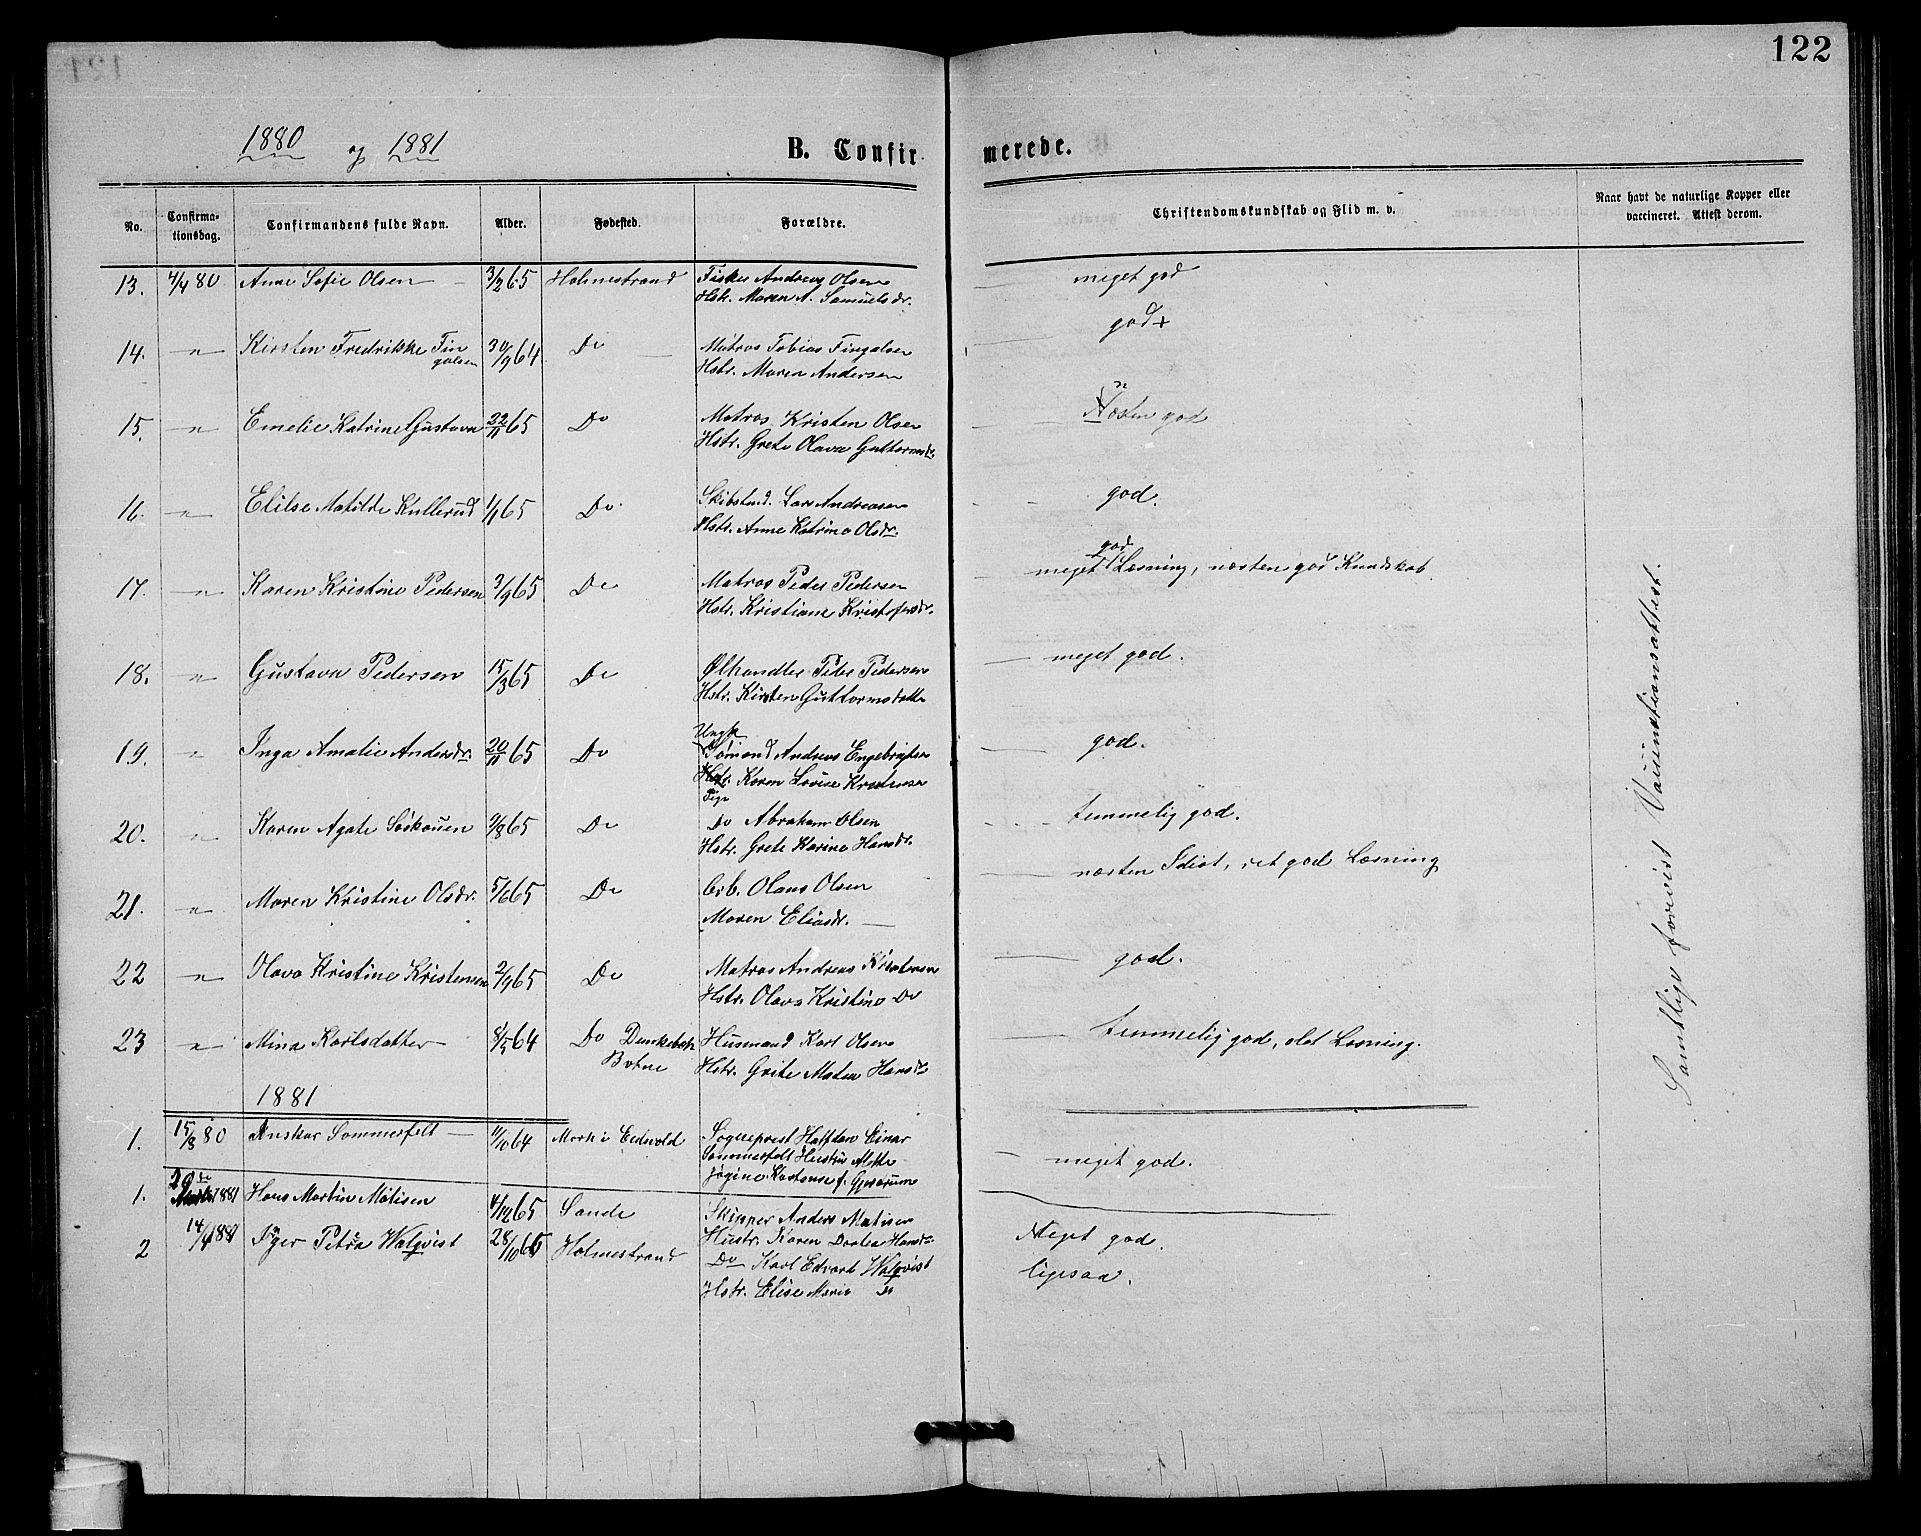 122
1880 og 1881
B. Confirmerede.
No. Confirmationsdag. Confirmandens fulde Navn. Alder. Fødested. Forældre. Christendomskundskab og Flid m. v. Naar havt de naturlige Kopper eller vaccineret. Attest derom.
13. 4/4 80 Anne Sofie Olsen 3/2 65 Holmestrand Fisker Andreas Olsen meget god
Hstr. Maren A. Samuelsdr.
14. " Kirsten Fredrikke Fingalsen 30/9 64 Do Matros Tobias Fingalsen god+
Hstr. Maren Andersen
15. " Emelie Katrine Gustava 22/11 65 Do Matros Kristen Olsen Næsten god
Hstr. Grete Olava Guttormsdr.
16. " Elilse Matilde Kullerud 1/1 65 Do Skibstmd. Lars Andreasen god.
Hstr. Anne Katrine Olsdr.
17. " Karen Kristine Pedersen 3/9 65 Do Matros Peder Pedersen meget god Læsning, næsten god Kundskab.
Hstr. Kristiane Kristofersdr.
18. " Gustava Pedersen 15/3 65 Do Ølhandler Peder Pedersen meget god.
Hstr. Kirsten Guttormsdatter
Ungk
19. " Inga Amalie Andersdr. 20/11 65 Do Sømand Andreas Engebrigtsen god.
Pige Karen Lovise Kristensen
20. " Karen Agate Soskouen 9/8 65 Do Do Abraham Olsen temmelig god.
Hstr. Grete Karine Hansdr.
21. " Maren Kristine Olsdr. 5/6 65 Do Arb. Olaus Olsen næsten Idiot, ret god Læsning
Maren Eliasdr.
22 " Olava Kristine Kristensen 2/9 65 Do Matros Andreas Kristensen god.
Hstr. Olava Kristine Do
23 " Mina Karlsdatter 8/5 64 Do Botne Husmand Karl Olsen temmelig god, slet Læsning.
Hstr. Grete Maten Hansdr
1881
1. 15/8 80 Anskar Sommerfelt 11/10 64 Mork i Eidvold Sogneprest Halfdan Einar meget god.
Sommerfelt Hustru Mette
Jøgine Konstanse f. Gjesørum
1. 1881 Hans Martin Matisen 4/12 65 Sande Skipper Anders Matisen Meget god.
Hustr. Karen Dortea Hansdr.
2 14/4 1881 Inger Petra Walqvist 28/10 66 Holmestrand Do Karl Edvart Walqvist ligesaa.
Hstr. Elise Marie Do
Samtlige forevist Vaccinationsattest.